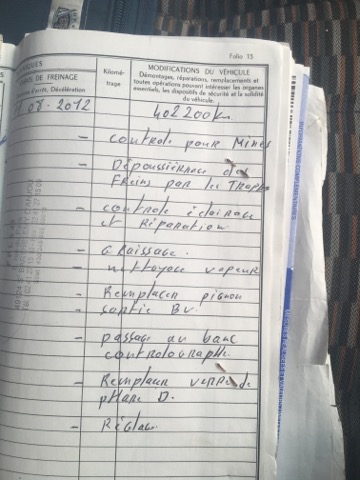 Folio 13
MODIFICATIONS DU VÉHICULE
DE FREINAGE
Kilomé-
trage
Démontages, réparations, remplacements et
toutes opérations pouvant intéresser les organes
essentiels, les dispositifs de sécurité et la solidité
du véhicule.
d'arrêt, Décélération
08-2012
402200km
- controle pour Mines
- Dépoussiérage des
Freins par les Trappes
- controle éclairage
et Réparation
- Graissage.
- nettoyage vapeur
- Remplacer pignon
sortie BV.
- passage au banc
controlographe.
- Remplacer verre de
phare D.
- Réglage